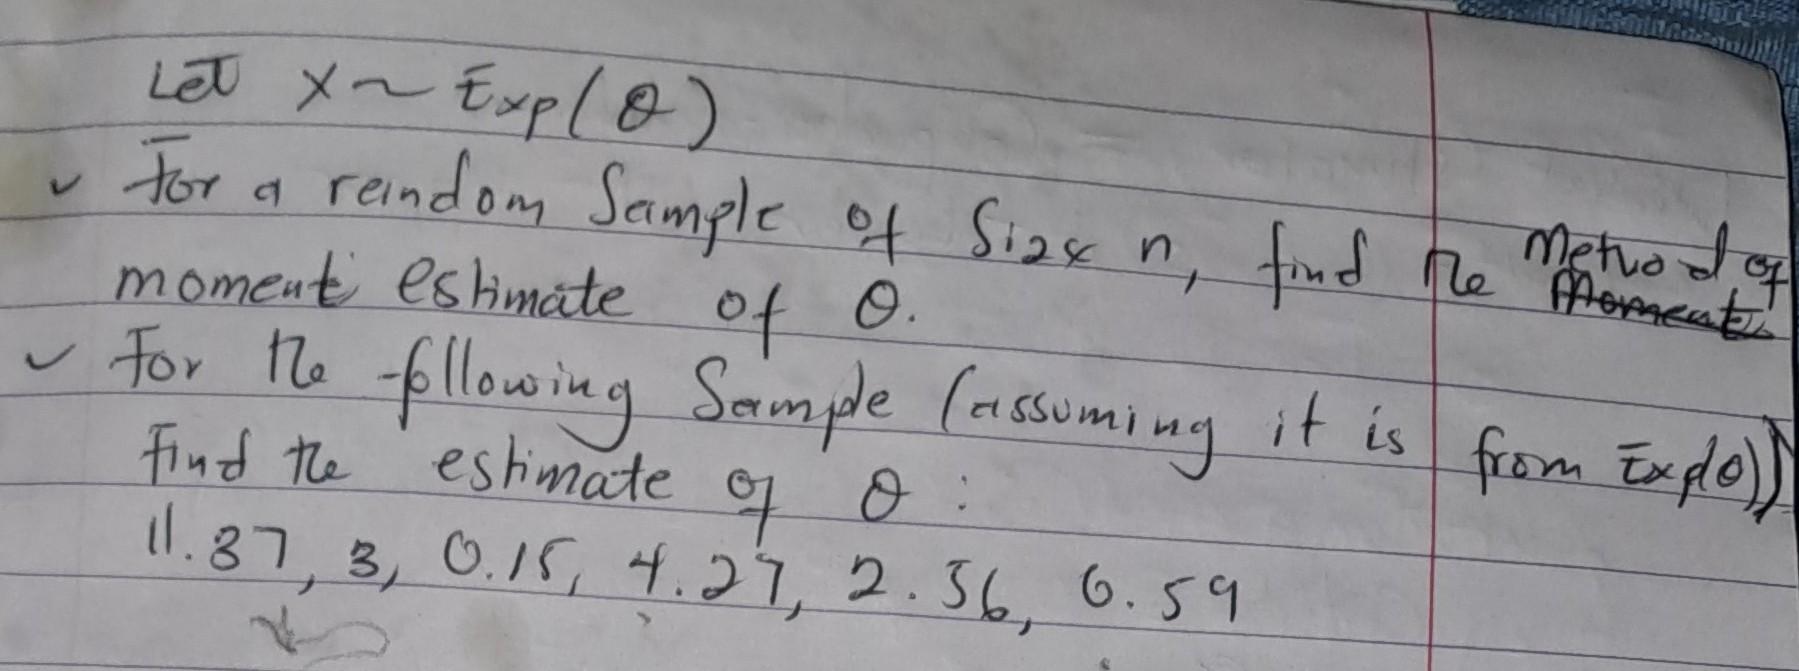 Let X ~ Exp(θ)
For a random Sample of Size n, find the Method of
moment estimate of θ.
For the following Sample (assuming it is from Exp(θ))
Find the estimate of θ :
11.37, 3, 0.15, 4.27, 2.56, 0.59